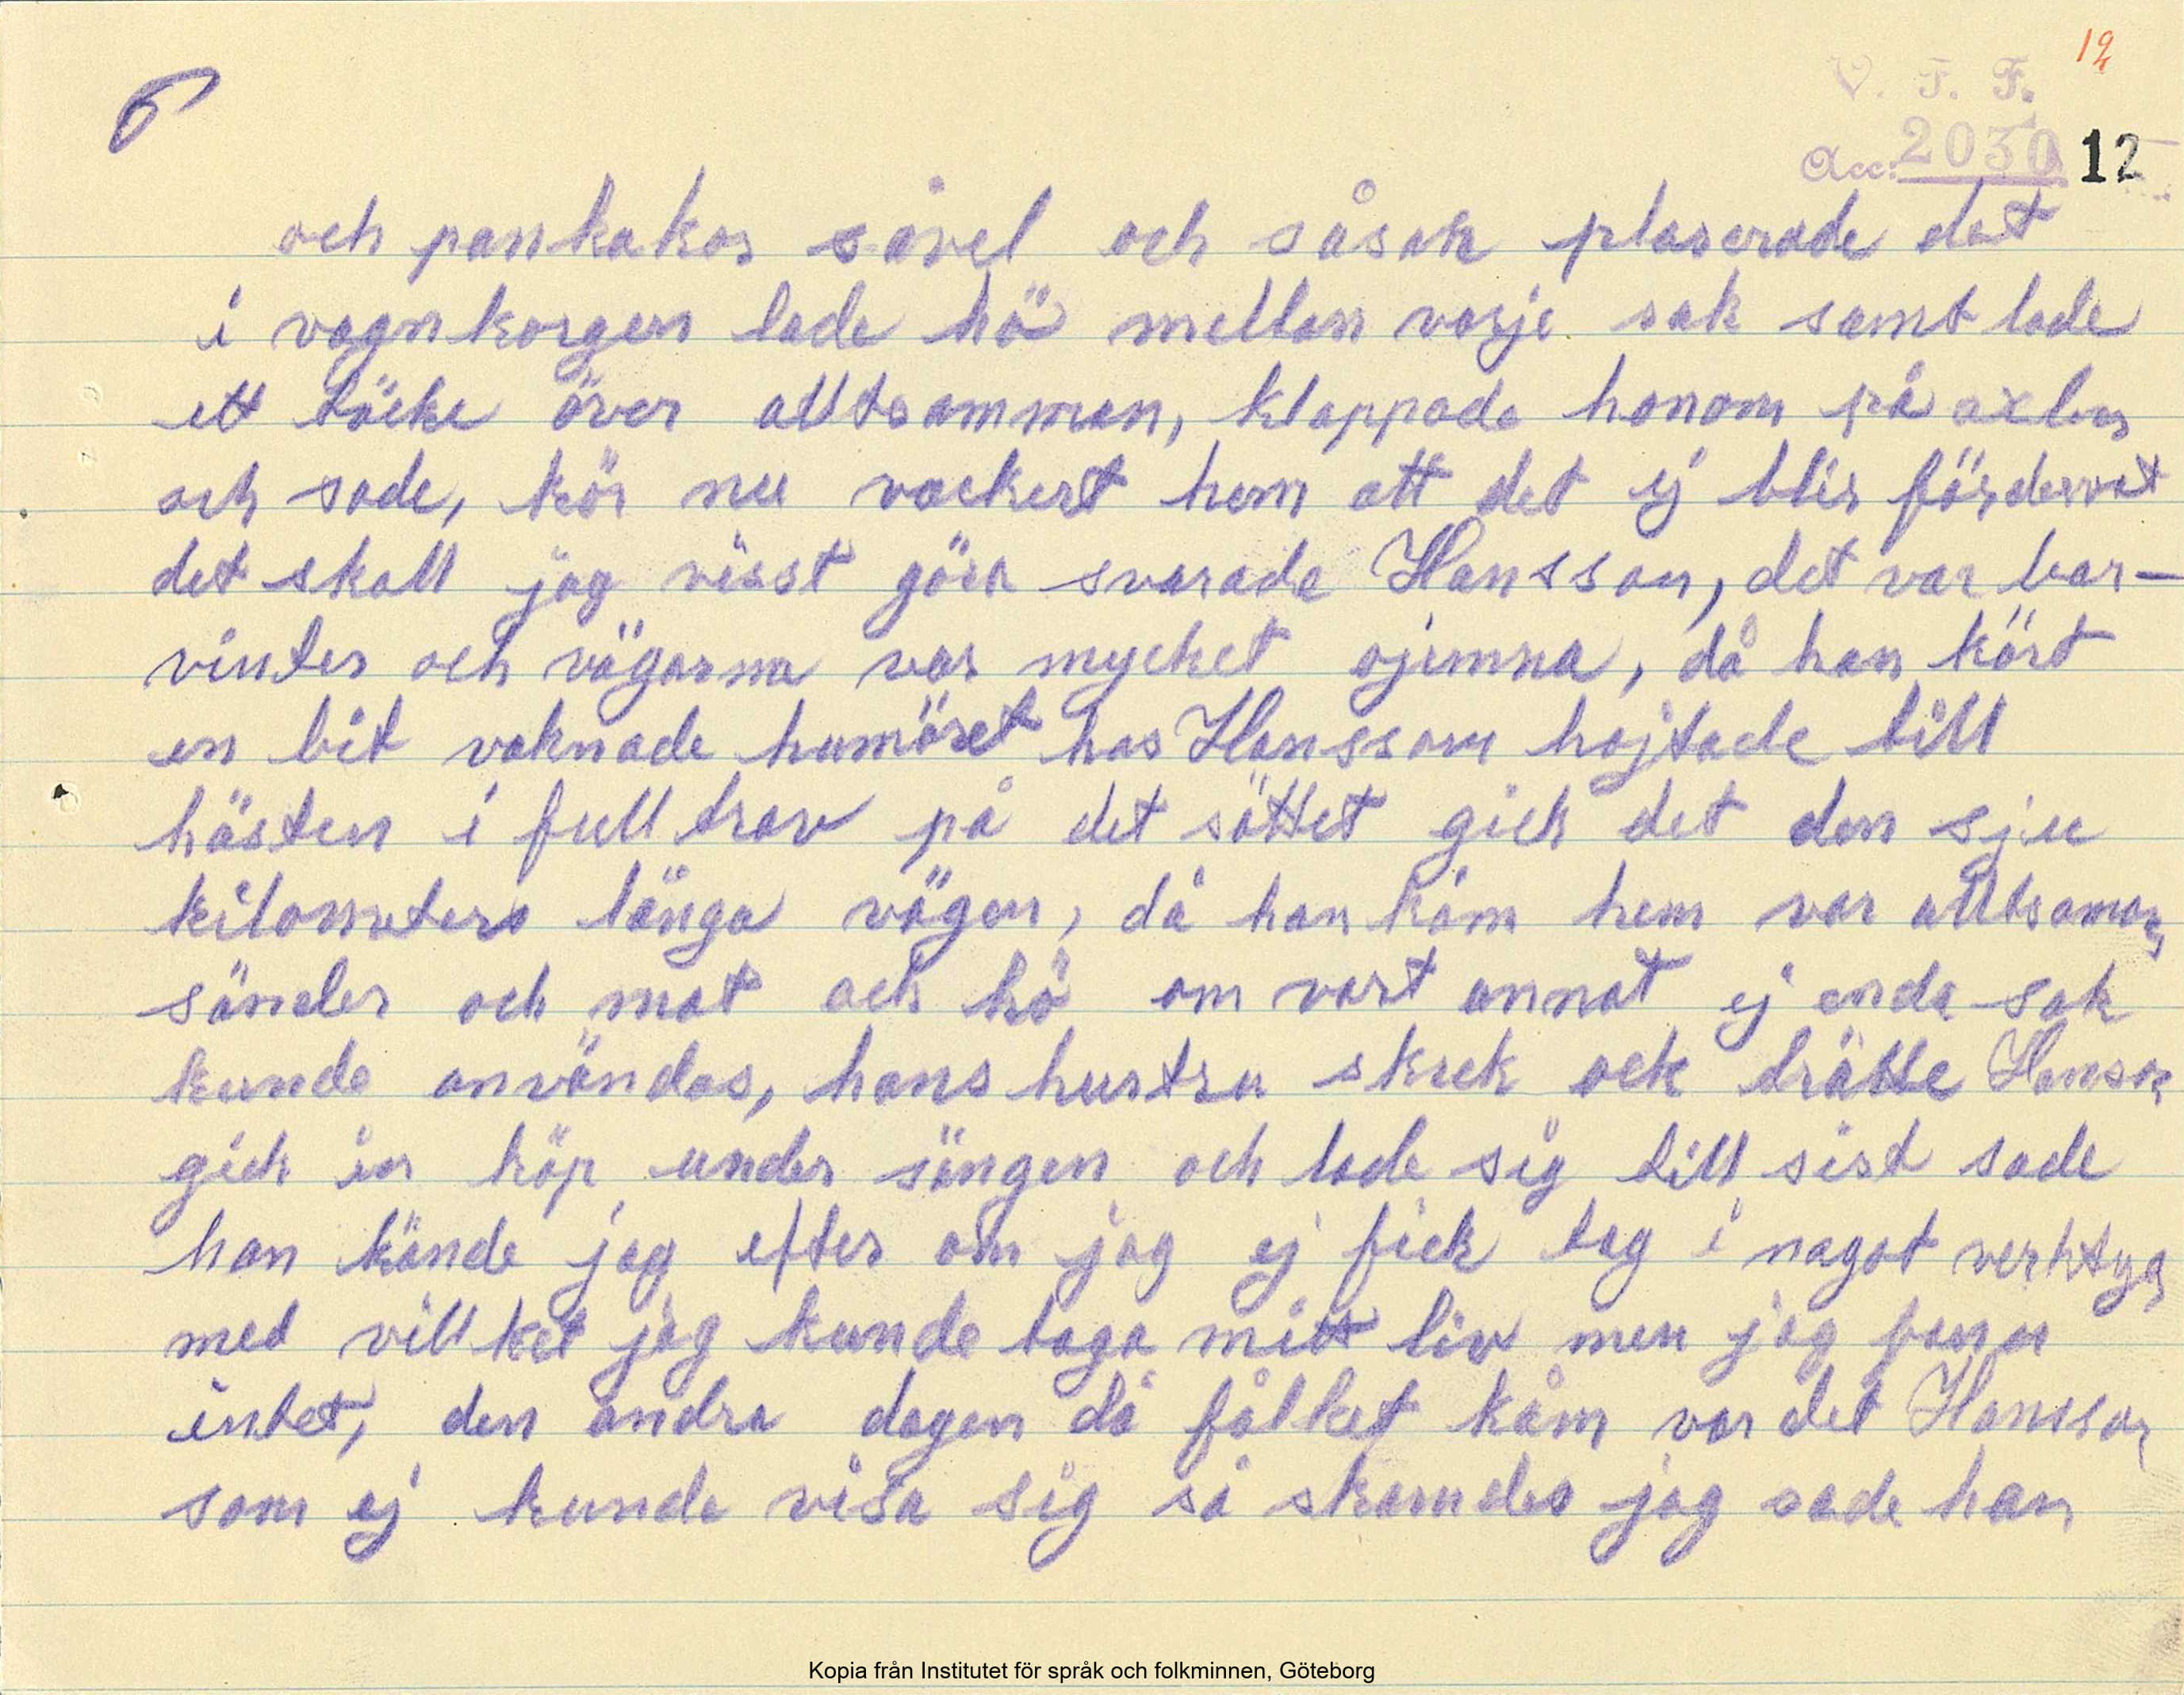 6
12
V. F. F.
Acc: 2030 12
och pankakor såvel och såsak plaserade det
i vagnkorgen lade hö mellan varje sak samt lade
ett täcke över alltsamman, klappade honom på axlen
och sade, kör nu vackert hem att det ej blir fördervat
det skall jag visst göra svarade Hansson, det var bar-
vinter och vägarna var mycket ojemna, då han kört
en bit vaknade humöret hos Hansson hojtade till
hästen i full trav på det sättet gick det den sju
kilometers långa vägen, då han kåm hem var alltsaman
sönder och mat och hö om vart annat ej enda sak
kunde användas, hans hustru skrek ock trätte Hanson
gick in köp under sängen och lade sig till sist sade
han kände jag efter om jag ej fick tag i nagot verktyg
med villket jag kunde taga mitt liv men jag fann
intet, den andra dagen då fålket kåm var det Hansson
som ej kunde visa sig så skamdes jag sade han
Kopia från Institutet för språk och folkminnen, Göteborg